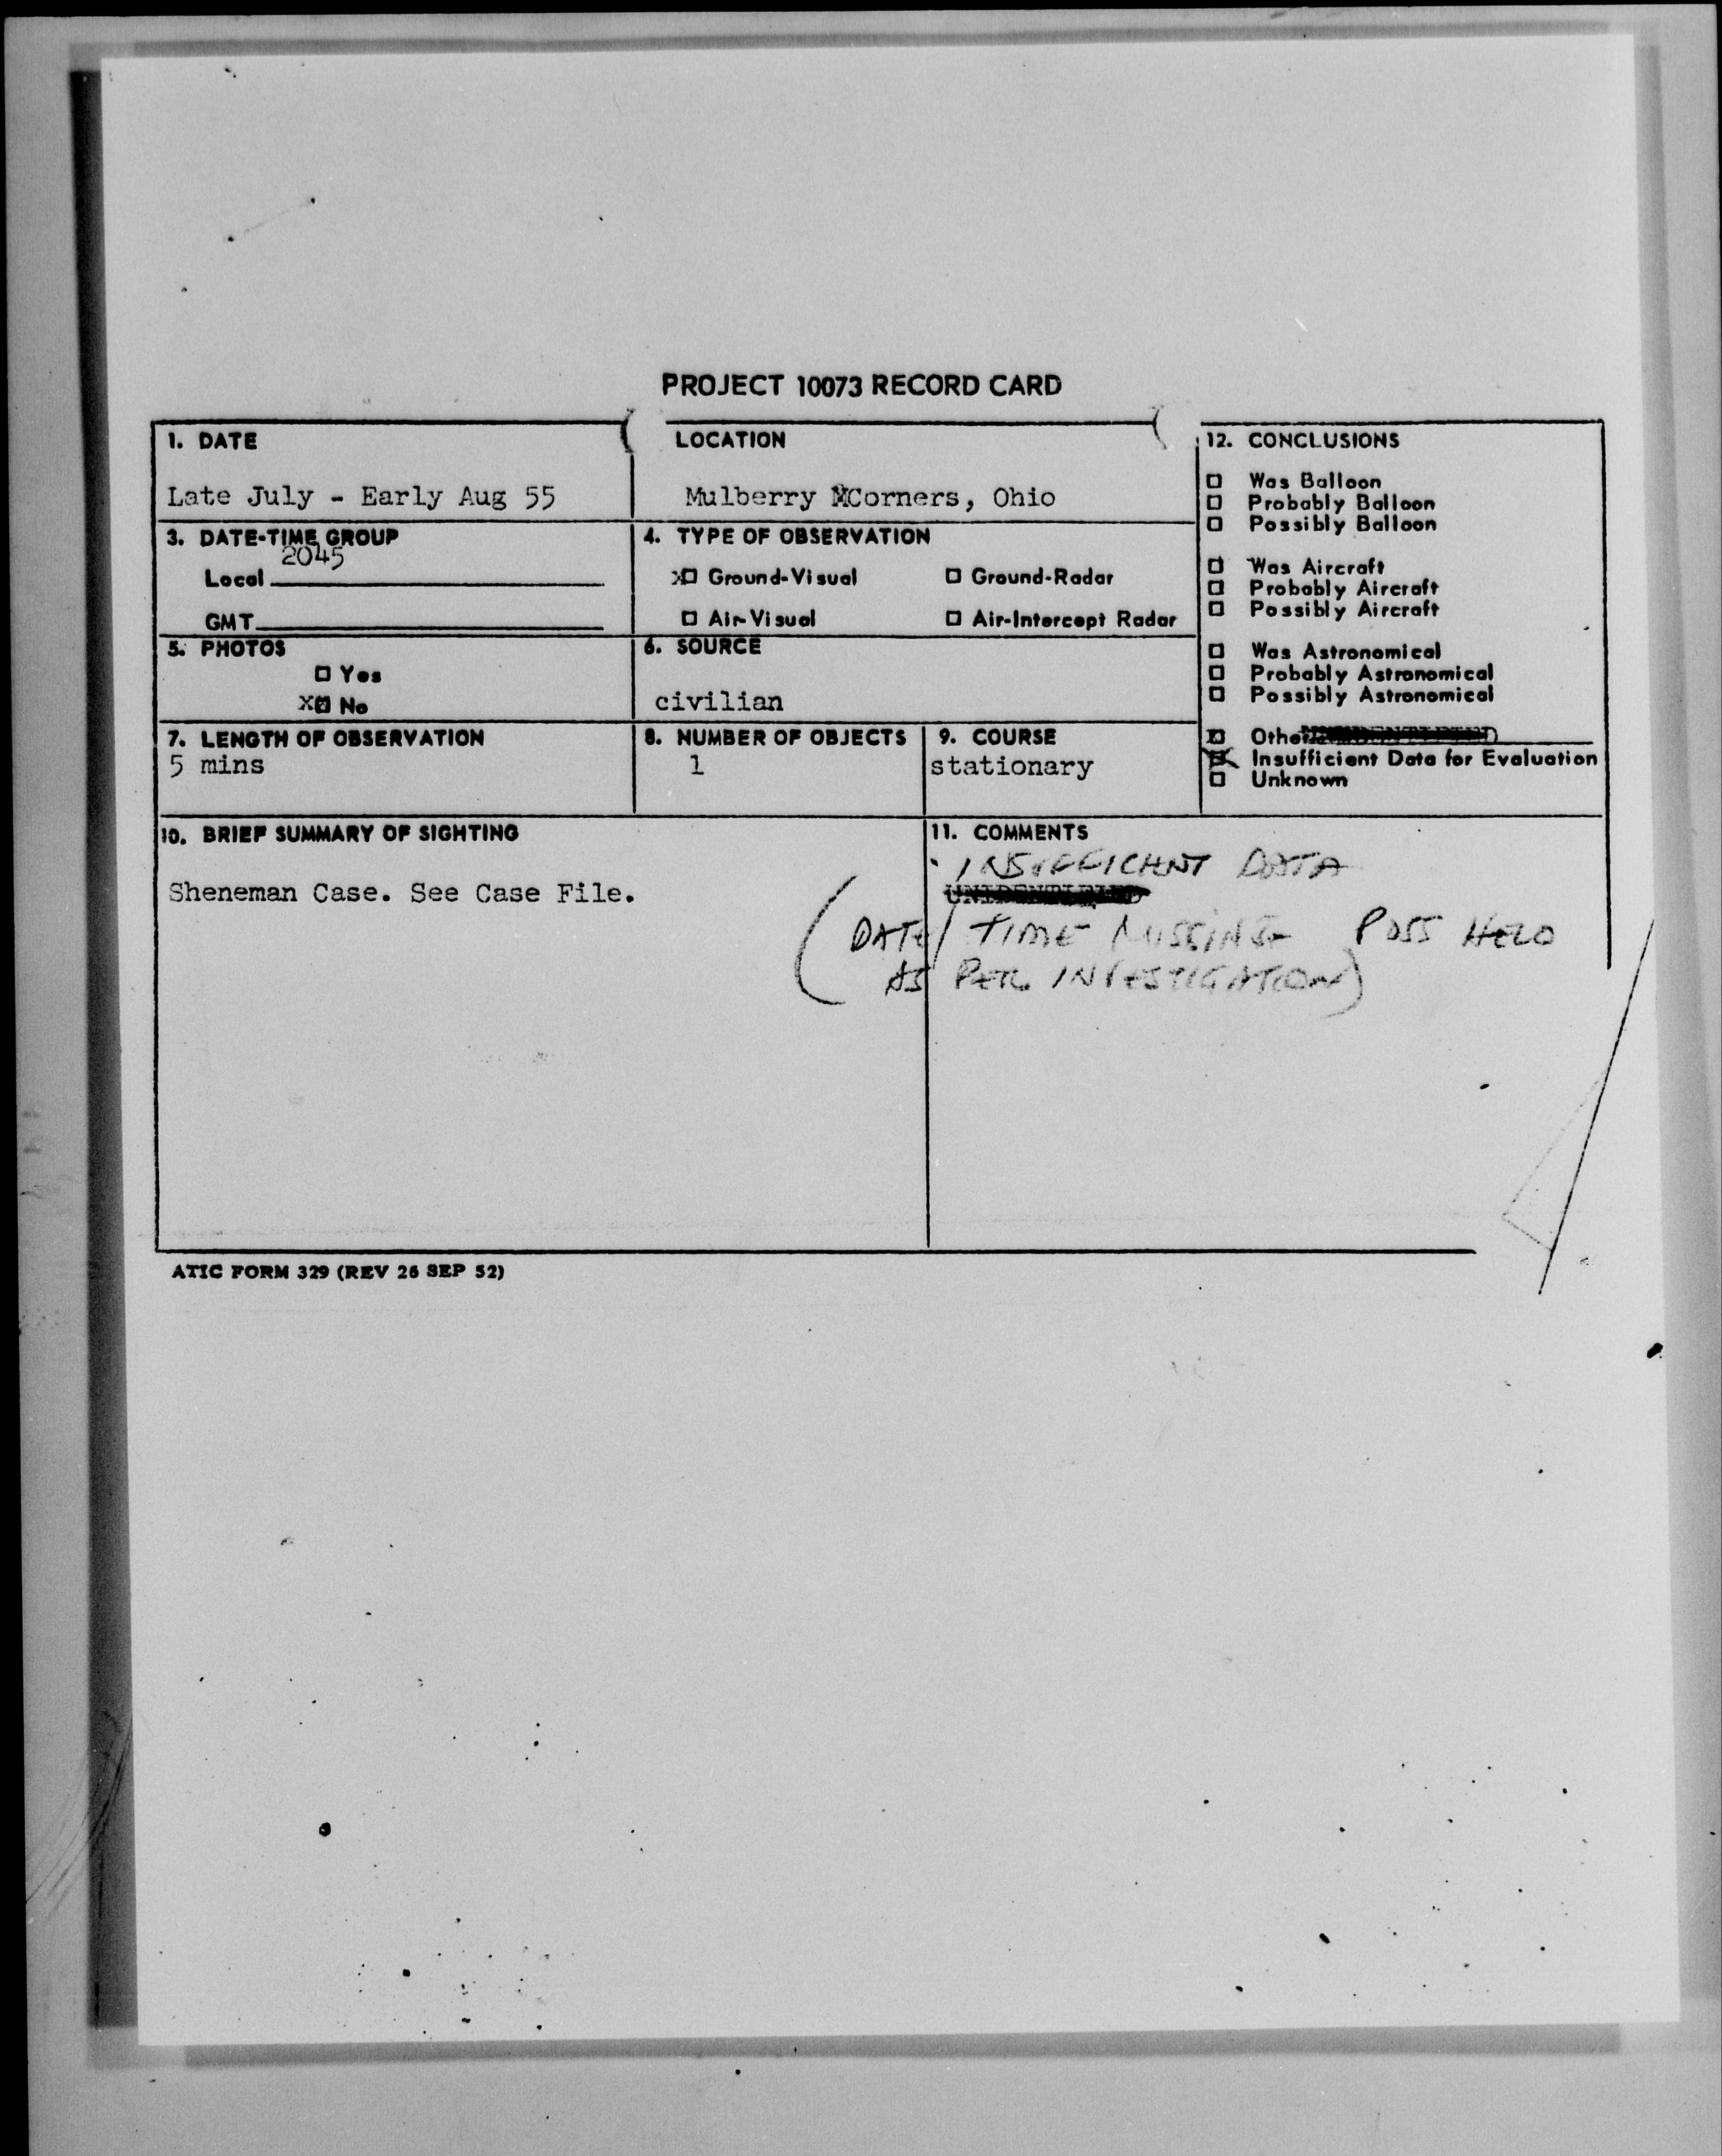 PROJECT 10073 RECORD CARD
1. DATE
Late July - Early Aug 55
LOCATION
Mulberry Corners, Ohio
3. DATE-TIME GROUP
2045
Local
GMT
4. TYPE OF OBSERVATION
X Ground-Visual Ground-Radar
Air-Visual Air-Intercept Radar
5. PHOTOS
Yes
X No
6. SOURCE
civilian
7. LENGTH OF OBSERVATION
5 mins
8. NUMBER OF OBJECTS
1
9. COURSE
stationary
12. CONCLUSIONS
Was Balloon
Probably Balloon
Possibly Balloon
Was Aircraft
Probably Aircraft
Possibly Aircraft
Was Astronomical
Probably Astronomical
Possibly Astronomical
Other
X Insufficient Data for Evaluation
Unknown
10. BRIEF SUMMARY OF SIGHTING
Sheneman Case. See Case File.
11. COMMENTS
INSUFFICIENT DATA
UNIDENTIFIED
(DATE/TIME MISSING POSS HELO
AS PER INVESTIGATION)
ATIC FORM 329 (REV 26 SEP 52)